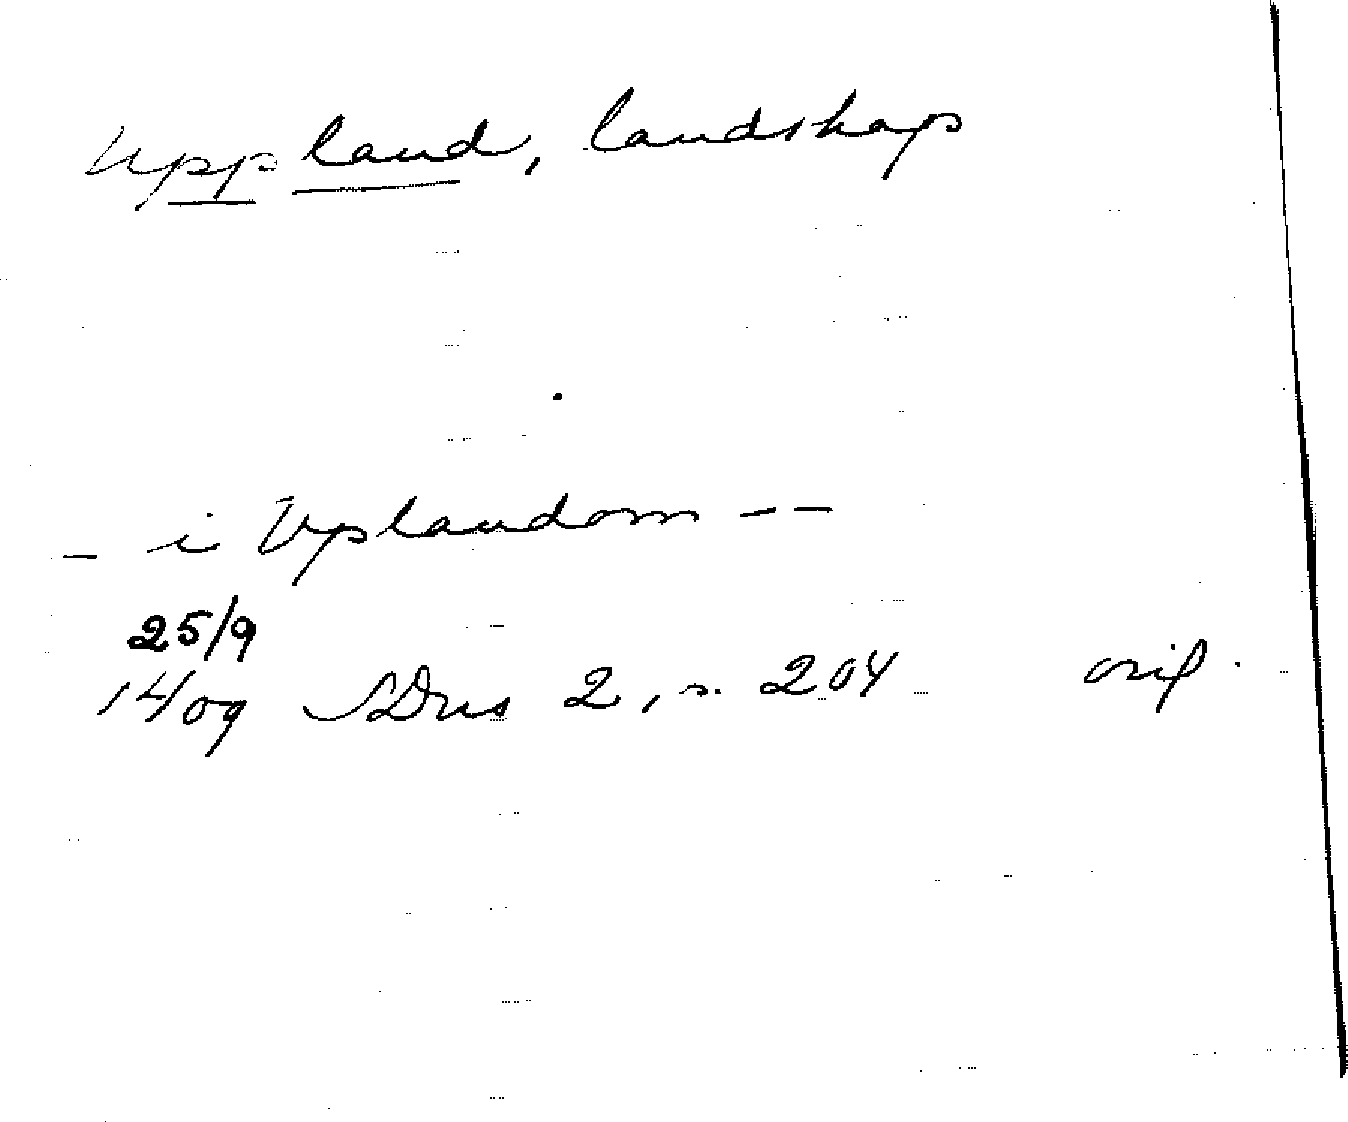 Uppland, landskap
- i Vplandom - -
25/9
1409 SDns 2, s. 204 orig.